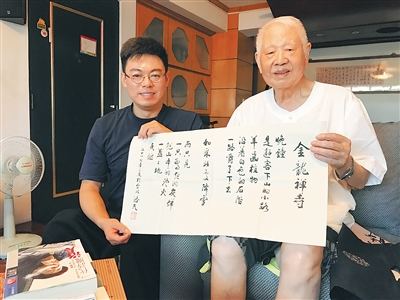 金龍禪寺
晚鐘
是遊客下山的小路
羊齒植物
沿著白色的石階
一路嚼了下去
如果此處降雪
而只見
一隻驚起的灰蟬
把山中的燈火
一盞盞地
點燃